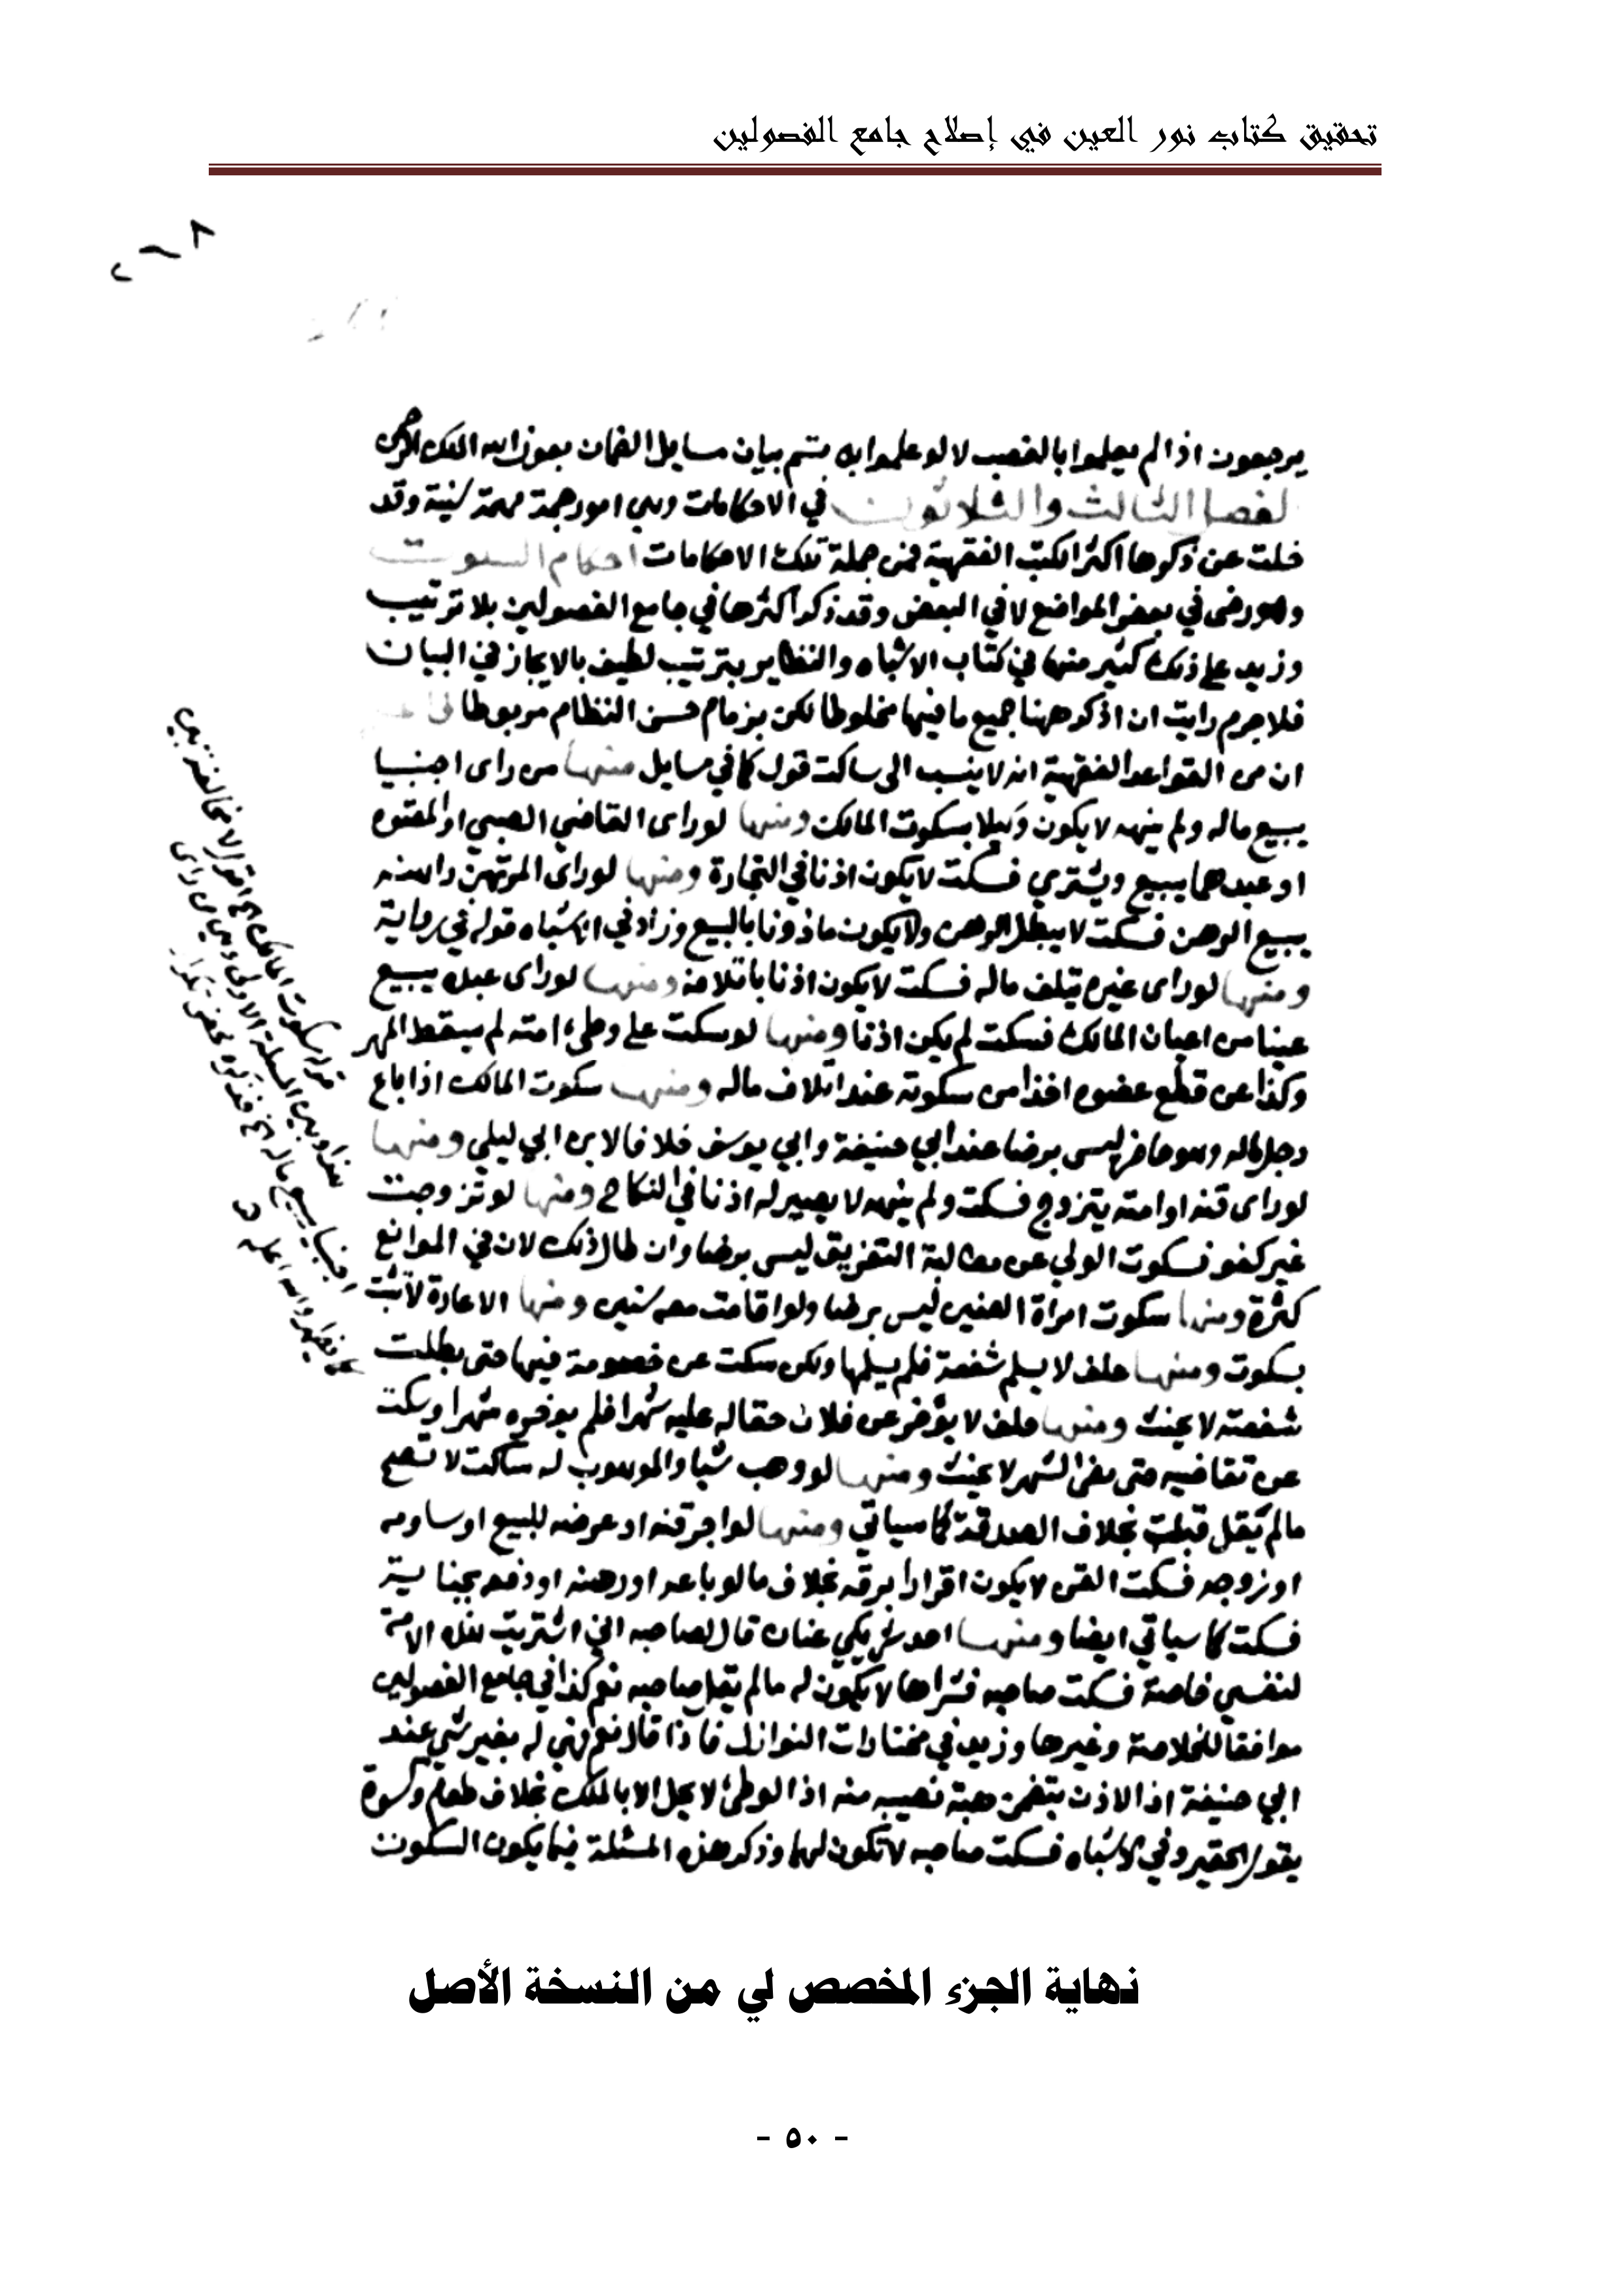 تحقيق كتاب نور العين في إصلاح جامع الفصولين
يرجعون اذا لم يعلموا بالغصب لا لو علموا به يتم بيان مسايل الضمان بعون الله الملك
لفصل الثالث والثلاثون في الاحكامات وهي امور جمة مهمة سنية وقد
خلت عن ذكرها اكثر الكتب الفقهية فمن جملة تلك الاحكامات احكام السكوت
وهو رضى في بعض المواضع لا في البعض وقد ذكر اكثرها في جامع الفصولين بلا ترتيب
وزيد على ذلك كثير منها في كتاب الاشباه والنظاير بترتيب لطيف بالايجاز في البيان
فلا جرم رايت ان اذكر ههنا جميع ما فيهما مخلوطا لكن بزمام حسن النظام مربوطا
ان من القواعد الفقهية انه لا ينسب الى ساكت قول كما في مسايل منها من راى اجنبيا
يبيع ماله ولم ينهه لا يكون وكيلا بسكوت المالك ومنها لو راى القاضي الصبي او المعتوه
او عبدهما يبيع ويشتري فسكت لا يكون اذنا في التجارة ومنها لو راى المرتهن راهنه
يبيع الرهن فسكت لا يبطل الرهن ولا يكون ماذونا بالبيع وزاد في الاشباه قوله في رواية
ومنها لو راى غيره يتلف ماله فسكت لا يكون اذنا باتلافه ومنها لو راى عبده يبيع
عينا من اعيان المالك فسكت لم يكن اذنا ومنها لو سكت على وطئ امته لم يسقط المهر
وكذا عن قطع عضوه اخذا من سكوته عند اتلاف ماله ومنها سكوت المالك اذا باع
رجل ماله وهو حاضر ليس برضا عند ابي حنيفة وابي يوسف خلافا لابن ابي ليلى ومنها
لو راى قنه او امته يتزوج فسكت ولم ينهه لا يصير له اذنا في النكاح ومنها لو تزوجت
غير كفو فسكوت الولي عن مطالبة التفريق ليس برضا وان طال ذلك لان في الموانع
كثرة ومنها سكوت امراة العنين ليس برضا ولو اقامت معه سنين ومنها الاعارة لا تثبت
بسكوت ومنها حلف لا يسلم شفعة فلم يسلمها ولكن سكت عن خصومة فيها حتى بطلت
شفعته لا يحنث ومنها حلف لا يؤخر عن فلان حقا له عليه شهرا فلم يؤخره شهرا وسكت
عن تقاضيه حتى مضى الشهر لا يحنث ومنها لو وهب شيا والموهوب له ساكت لا تصح
ما لم يقل قبلت بخلاف الصدقة كما سياتي ومنها لو اجر قنه او عرضه للبيع او ساومه
او زوجه فسكت القن لا يكون اقرارا برقه بخلاف ما لو باعه او رهنه او دفعه بجناية
فسكت كما سياتي ايضا ومنها احد شريكي عنان قال لصاحبه اني اشتريت هذه الامة
لنفسي خاصة فسكت صاحبه فشراها لا يكون له ما لم يقل صاحبه نعم كذا في جامع الفصولين
موافقا للخلاصة وغيرها وزيد في مختارات النوازل فاذا قال نعم فهي له بغير شي عند
ابي حنيفة اذ الاذن يتضمن هبة نصيبه منه اذ الوطئ لا يحل الا بالملك بخلاف طعام وكسوة
يقول الحقير وفي الاشباه فسكت صاحبه لا تكون لهما وذكر هذه المسئلة فيما يكون السكوت
نهاية الجزء المخصص لي من النسخة الأصل
- ٥٠ -